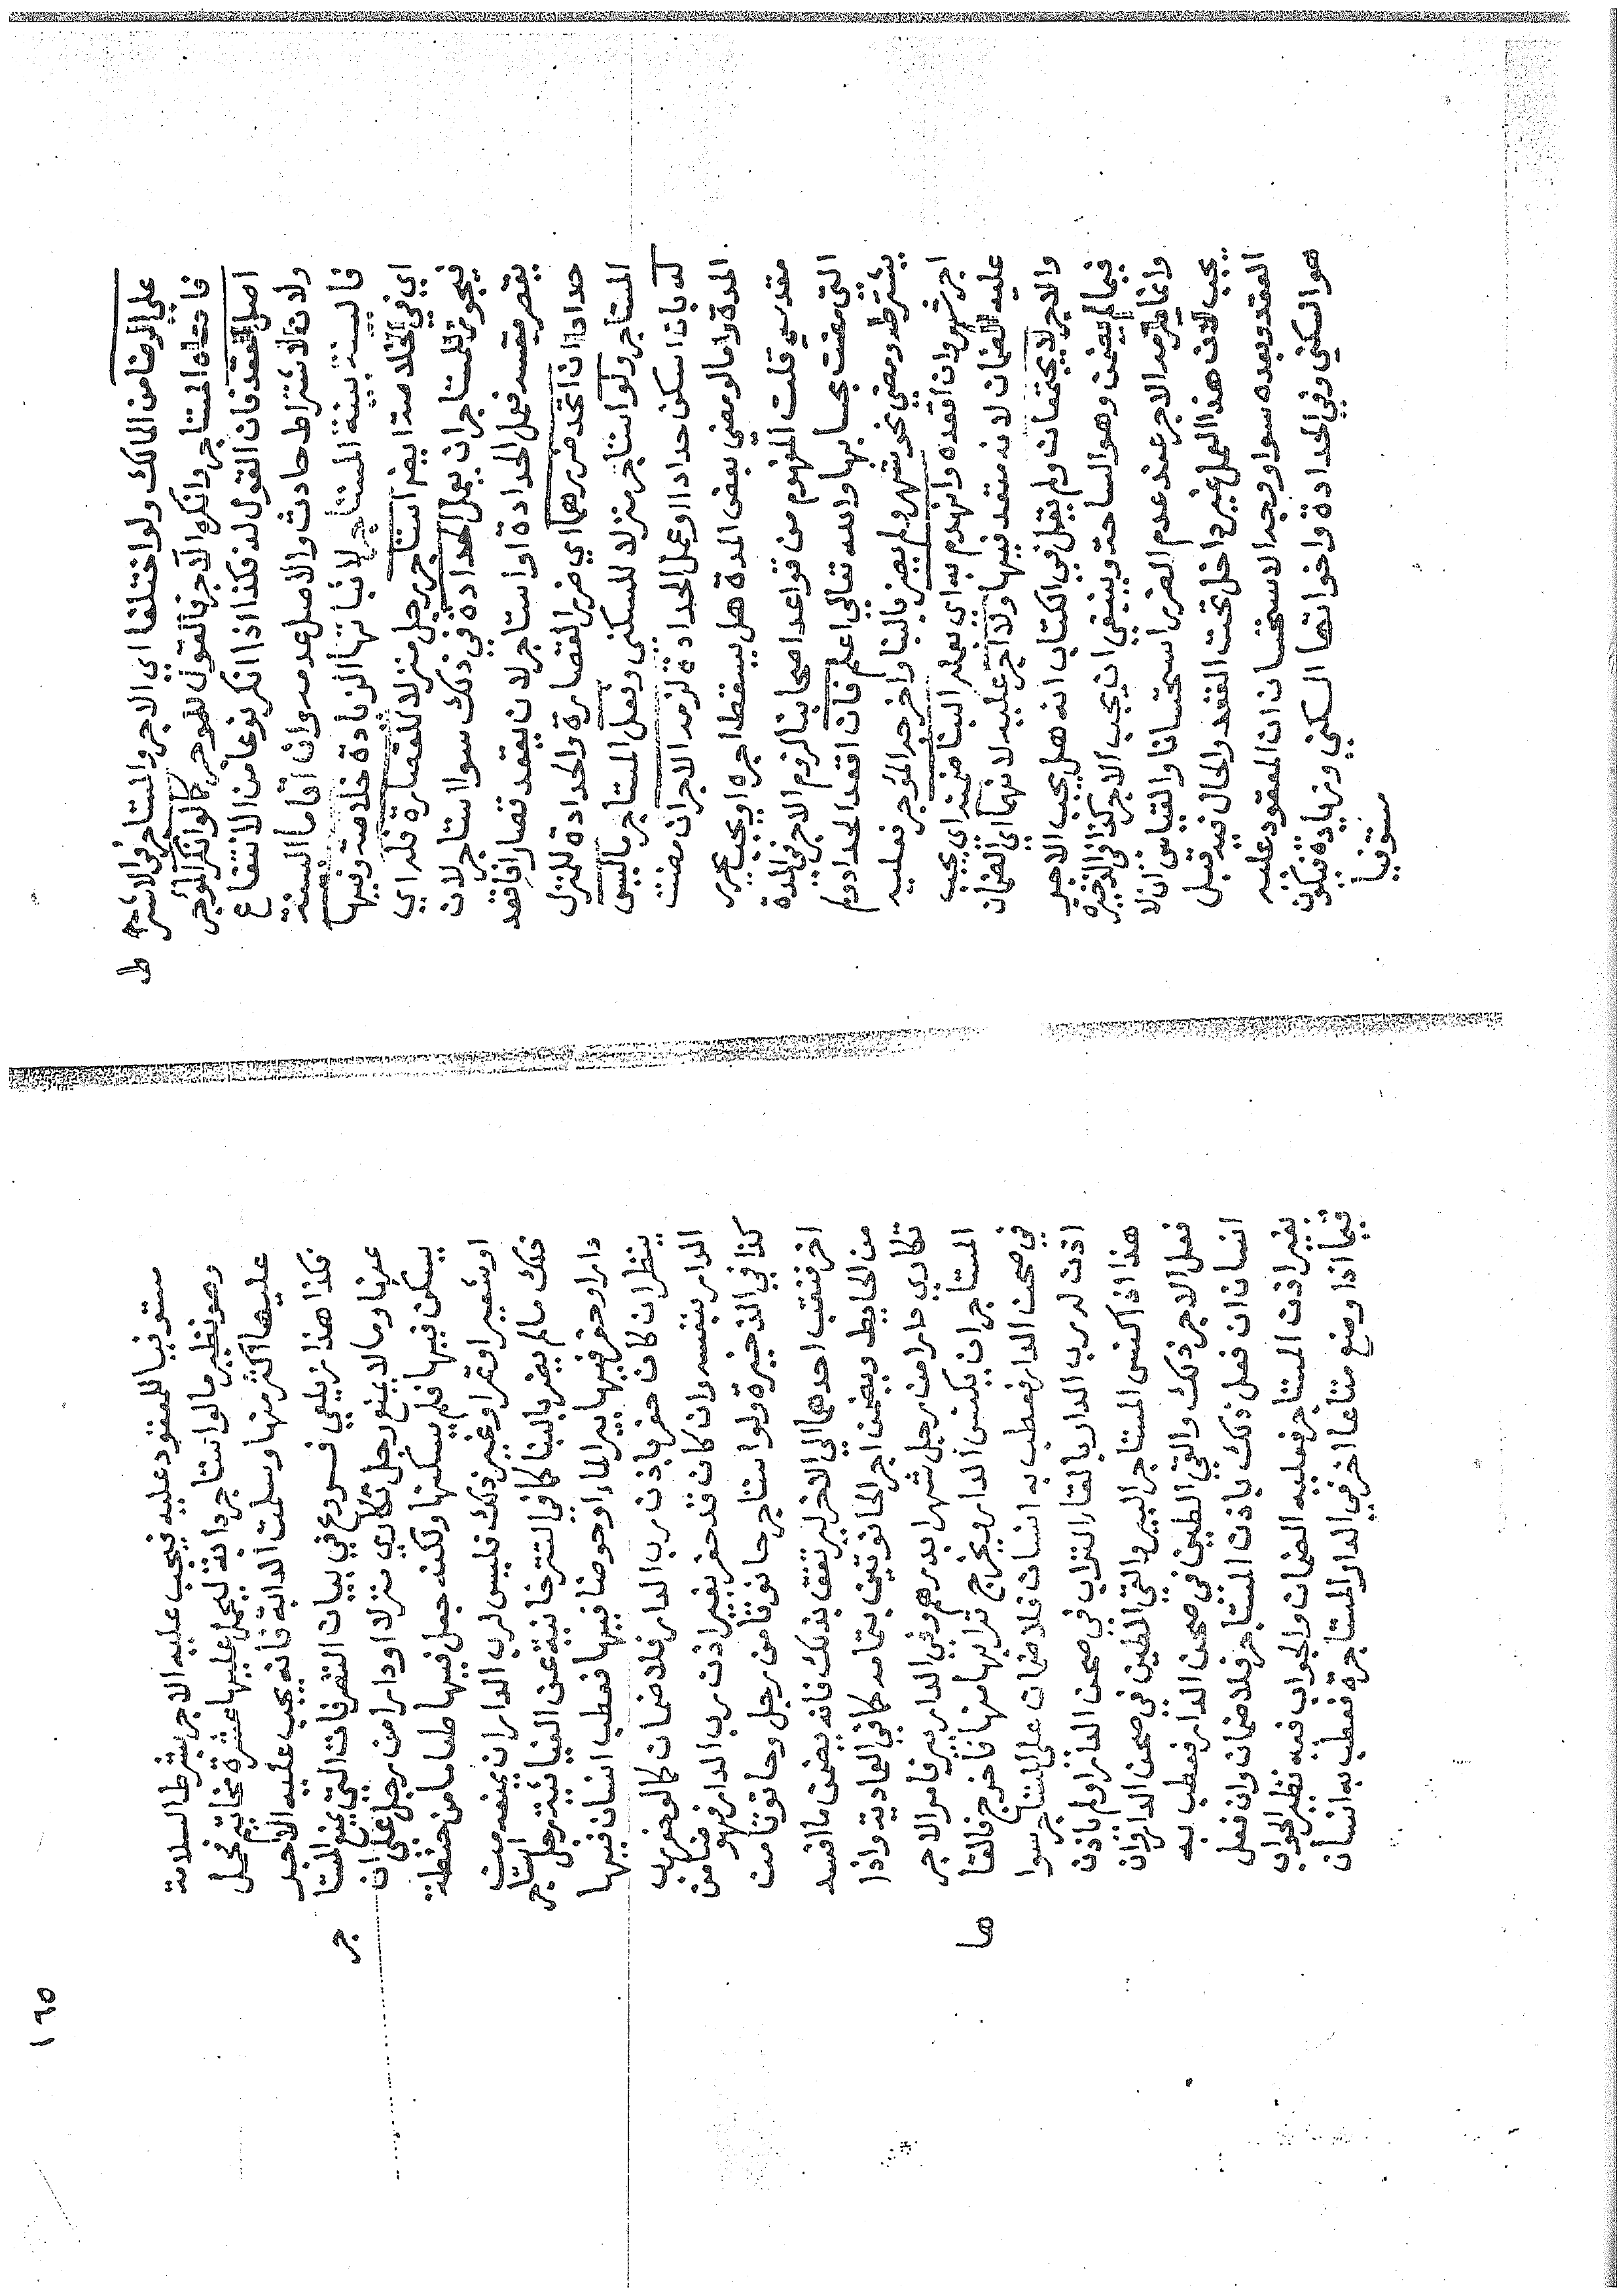 على الرضا من المالك ولو اختلفا اي الاجر والمستاجر في الاشترا
ط
فادعاه المستاجر وانكره الآجر فالقول للموجر كما لو انكر الموجر
اصل العقد فان القول له فكذا اذا انكر نوعا من الانتفاع
ولان الاشتراط حادث والاصل عدمه وان اقاما البينة
فالبينة بينة المستاجر لاثباتها الزيادة خلاصه وفيها
اي في الخلاصة ايضا استاجر رجل منزلا للقصارة فله اي
فيجوز للمستاجر ان يعمل الحدادة في ذلك سوا استاجر لان
يقصر فيه فعمل الحدادة او استاجر لان يقعد قصارا فاقعد
حدادا ان اتحد ضررهما اي ضرر القصارة والحدادة للمنزل
المستاجر ولو استاجر منزلا للسكني وفعل المستاجر ما ليس
له بان اسكن حدادا او عمل الحدادة لزمه الاجر ان مضت
المدة واما لو مضي بعض المدة هل يسقط اجره او يجب حرره
مقدسي قلت المفهوم من قواعد اصحابنا لزوم الاجر في المدة
التي مضت بحسابها والله تعالي اعلم فان اقعد الحداد ولم
يشترطه ومضي نحو شهر ولم يضر بالبنا واخرجه المؤجر فعليه
اجر شهر وان اقعده وانهدم به اي بعمله البنا ضمنه اي يجب
عليه الضمان لانه متعد فيها ولا اجر عليه لانهما اي الضمان
والاجر لا يجتمعان ولم يقل في الكتاب انه هل يجب الاجر
فيما لم يضمن وهو الساحة وينبغي ان يجب الاجر كذا في الذخيرة
وانما لزمه الاجر عند عدم الضرر استحسانا والقياس ان لا
يجب لان هذا العمل غير داخل تحت العقد والحال فيه قبل
العقد وبعده سوا ووجه الاستحسان ان المعقود عليه
هو السكني وفي الحدادة واخواتها السكني وزيادة فيكون
ستوفيا
١٦٥
ستوفيا للمعقود عليه فيجب عليه الاجر بشرط السلامة
وهو نظير ما لو استاجر دابة ليحمل عليها عشرة مخاتيم فحمل
عليها اكثر منها وسلمت الدابة فانه يجب عليه الاجر
فكذا هذا زيلعي فروع في بيان التصرفات التي يمنع المستا
جر
عنها وما لا يمنع رجل تكاري منزلا او دارا من رجل علي ان
يسكن فيها فلم يسكنها ولكنه جعل فيها طعاما من حنطة
او شعير او تمر او غير ذلك فليس لرب الدار ان يمنعه من
ذلك ما لم يضر بالبنا كما في التترخانية عن الغياثية رجل استاجر
دارا وحفر فيها بير الماء او حوضا فيها فعطب انسان فيها
ينظر ان كان حفر باذن رب الدار فلا ضمان كما لو حفر رب
الدار بنفسه وان كان قد حفر بغير اذن رب الدار فهو ضامن
كذا في الذخيرة ولو استاجر حانوتا من رجل وحانوتا من
اخر فنقب احدهما الي الاخر ليرتفق بذلك فانه يضمن ما افسد
من الحايط ويضمن اجر الحانوتين بتمامه كما في العمادية واذا
تكاري دارا من رجل شهرا بدرهم وفي الدار بير فامر الاجر
المستاجر ان يكنس الدار ويخرج ترابها منها فاخرج فالقا
ها
في صحن الدار فعطب به انسان فلا ضمان علي المستاجر سوا
اذن له رب الدار بالقاء التراب في صحن الدار او لم ياذن
هذا اذا كنس المستاجر البير والقي الطين في صحن الدار وان
فعل الاجر ذلك والقي الطين في صحن الدار فعطب به
انسان ان فعل ذلك باذن المستاجر فلا ضمان وان فعل
بغير اذن المستاجر فعليه الضمان والجواب فيه نظير الجواب
فيما اذا وضع متاعا اخر في الدار المستاجرة فعطب به انسان